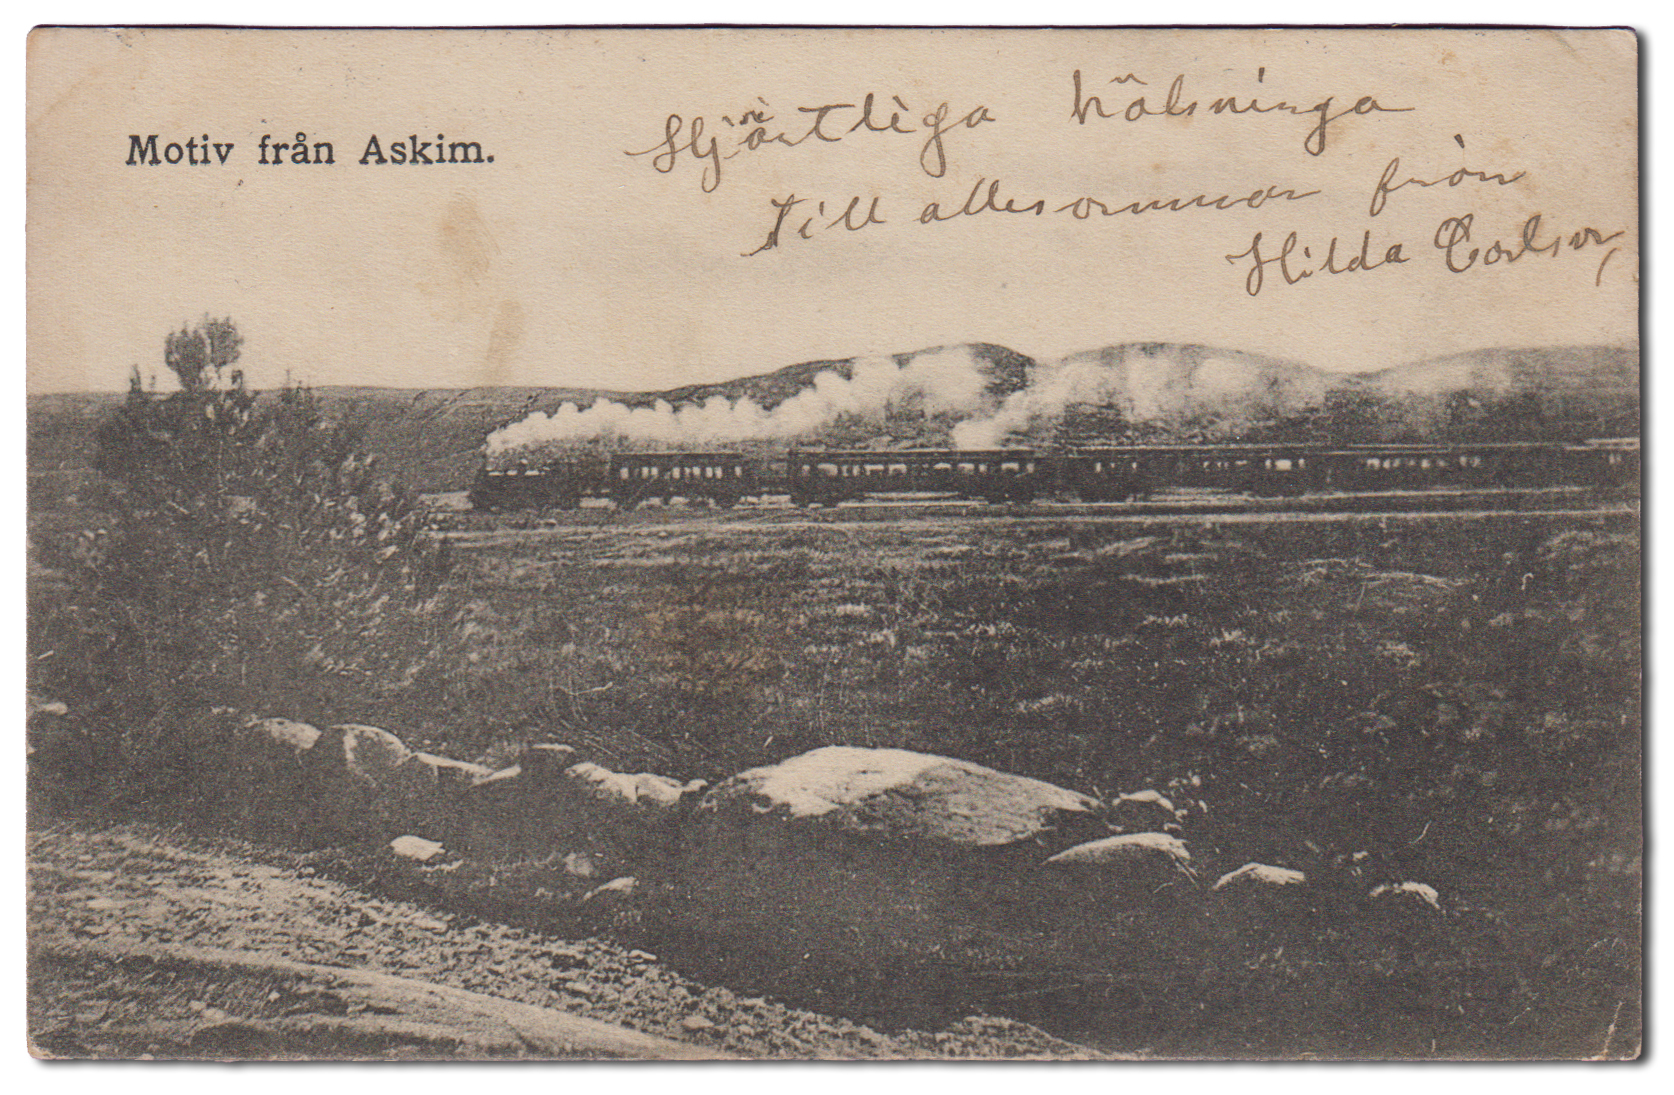 Motiv från Askim.
Hjärtliga hälsninga
till allesamman från
Hilda Carlson